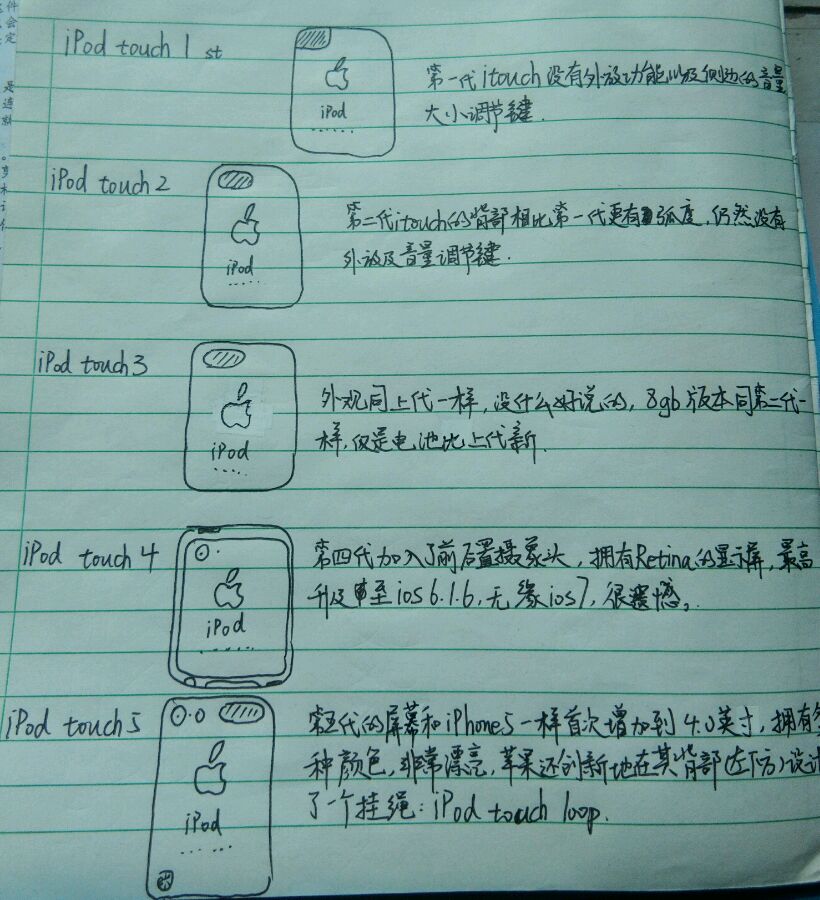 iPod touch 1 st
iPod
第一代itouch没有外放功能以及侧边的音量
大小调节键.
iPod touch 2
iPod
第二代itouch的背部相比第一代更有弧度,仍然没有
外放及音量调节键.
iPod touch 3
iPod
外观同上代一样,没什么好说的,8gb版本同第二代一
样,仅是电池比上代新.
iPod touch 4
iPod
第四代加入了前后置摄象头,拥有Retina的显示屏,最高
升级至ios 6.1.6,无缘ios7,很遗憾。
iPod touch 5
iPod
第五代的屏幕和iPhone5一样首次增加到4.0英寸,拥有
种颜色,非常漂亮,苹果还创新地在其背部(左下方)设计
了一个挂绳:iPod touch loop.
件
会
定
是